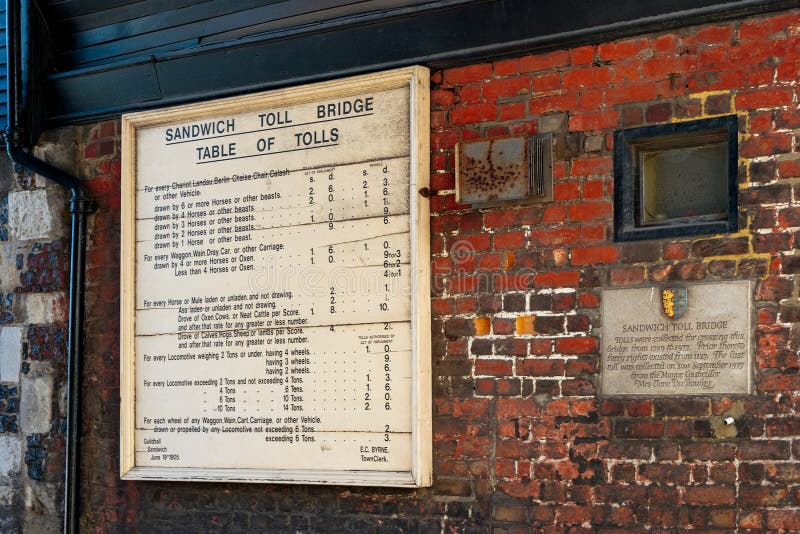 SANDWICH TOLL BRIDGE
TABLE OF TOLLS
TOLLS AUTHORISED BY
ACT OF PARLIAMENT
PAYABLE
s. d. s. d.
For every Chariot.Landau Berlin Chaise.Chair.Calash.
or other Vehicle.
drawn by 6 or more Horses or other beasts. 2. 6. 2. 3.
drawn by 4 Horses or other beasts. 2. 0. 1. 6.
drawn by 3 Horses or other beasts. 1. 0.
drawn by 2 Horses or other beasts. 1. 0.
drawn by 1 Horse or other beast. 9. 6.
For every Waggon.Wain.Dray.Car. or other Carriage.
drawn by 4 or more Horses or Oxen. 1. 6. 1. 0.
Less than 4 Horses or Oxen. 1. 0. 9for3
6for2
4for1
For every Horse or Mule laden or unladen, and not drawing. 2. 1.
Ass laden or unladen and not drawing. 2. 1.
Drove of Oxen.Cows. or Neat Cattle per Score. 1. 8. 10.
and after that rate for any greater or less number.
Drove of Calves.Hogs.Sheep.or lambs per Score. 4. 2.
and after that rate for any greater or less number.
TOLLS AUTHORISED BY
ACT OF PARLIAMENT
For every Locomotive weighing 2 Tons or under. having 4 wheels. 1. 0.
having 3 wheels. 9.
having 2 wheels. 6.
For every Locomotive exceeding 2 Tons and not exceeding 4 Tons. 1. 3.
4 6 Tons. 1. 6.
6 10 Tons. 2. 0.
10 14 Tons. 2. 6.
For each wheel of any Waggon.Wain.Cart.Carriage. or other Vehicle.
drawn or propelled by any Locomotive not exceeding 6 Tons. 2.
exceeding 6 Tons. 3.
Guildhall
Sandwich
June 19th 1905
E.C. BYRNE.
TownClerk.
SANDWICH TOLL BRIDGE
TOLLS were collected for crossing this
Bridge from 1759 to 1977. Prior thereto
ferry rights existed from 1127. The last
toll was collected on 30th September 1977
from the Mayor Councillor
Mrs Jane Du Boulay
dreamstime